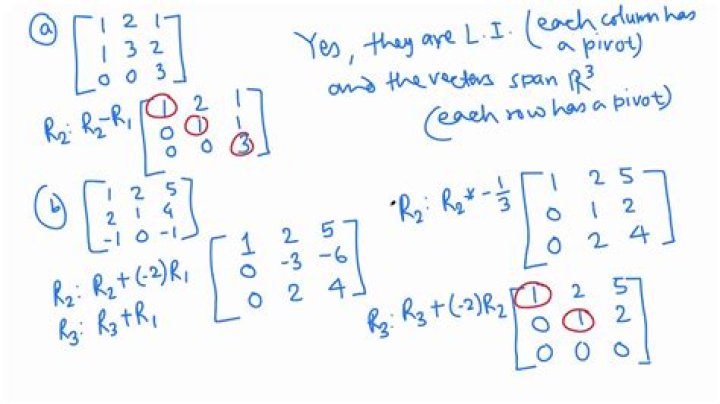 (a) [1 2 1
1 3 2
0 0 3]
Yes, they are L.I. (each column has
a pivot)
and the vectors span R³
(each row has a pivot)
R₂: R₂-R₁ [1 2 1
0 1 1
0 0 3]
(b) [1 2 5
2 1 4
-1 0 -1]
R₂: R₂+(-2)R₁
R₃: R₃+R₁
[1 2 5
0 -3 -6
0 2 4]
R₂: R₂* -1/3 [1 2 5
0 1 2
0 2 4]
R₃: R₃+(-2)R₂ [1 2 5
0 1 2
0 0 0]